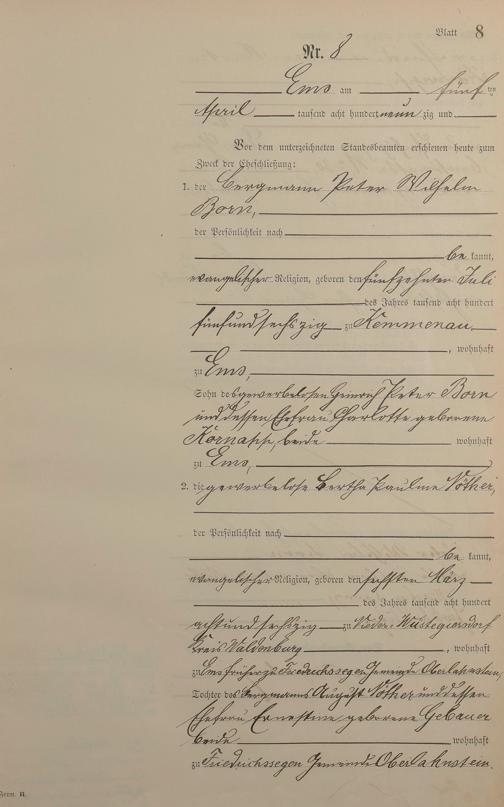 Blatt 8
Nr. 8
Ems am fünften
April tausend acht hundert neun zig und
Vor dem unterzeichneten Standesbeamten erschienen heute zum
Zweck der Eheschließung:
1. der Bergmann Peter Wilhelm
Born,
der Persönlichkeit nach
be kannt,
evangelischer Religion, geboren den fünfzehnten Juli
des Jahres tausend acht hundert
fünfundsechszig zu Kemmenau
, wohnhaft
zu Ems,
Sohn des gewerbelosen Heinrich Peter Born
und dessen Ehefrau Charlotte geborene
beide wohnhaft
zu Ems,
2. die gewerbelose Bertha Pauline Nöther,
der Persönlichkeit nach
be kannt,
evangelischer Religion, geboren den sechsten März
des Jahres tausend acht hundert
achtundsechszig zu Nieder Wüstegiersdorf
Kreis Waldenburg , wohnhaft
zu Ems früher zu Friedrichssegen Gemeinde Oberlahnstein,
Tochter des Bergmanns August Nöther und dessen
Ehefrau Ernestine geborene Gebauer
beide wohnhaft
zu Friedrichssegen Gemeinde Oberlahnstein.
Form. B.